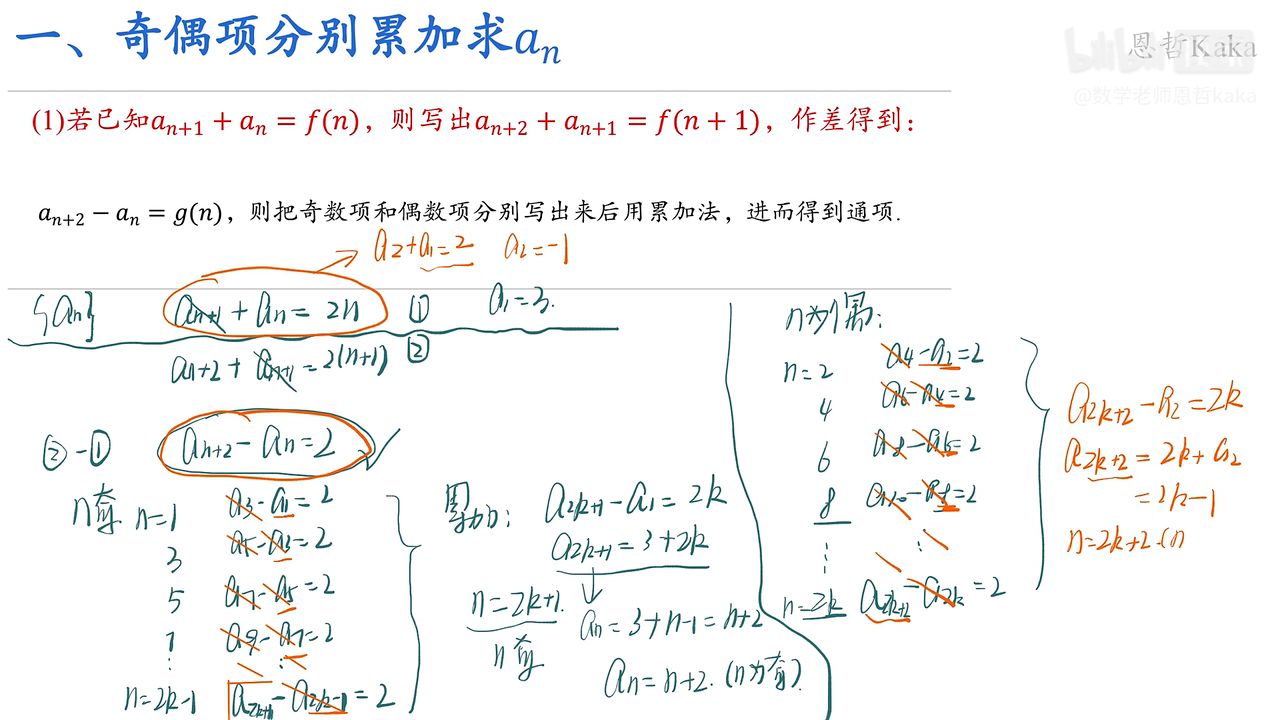 一、奇偶项分别累加求aₙ
恩哲Kaka
bilibili
@数学老师恩哲kaka
(1)若已知aₙ₊₁ + aₙ = f(n)，则写出aₙ₊₂ + aₙ₊₁ = f(n + 1)，作差得到：
aₙ₊₂ − aₙ = g(n)，则把奇数项和偶数项分别写出来后用累加法，进而得到通项.
a₂+a₁=2 a₂=-1
{aₙ} aₙ₊₁ + aₙ = 2n ① a₁=3.
aₙ₊₂ + aₙ₊₁ = 2(n+1) ②
②-① aₙ₊₂ - aₙ = 2
n奇 n=1 a₃-a₁=2
3 a₅-a₃=2
5 a₇-a₅=2
7 a₉-a₇=2
⋮ ⋮
n=2k-1 a₂ₖ₊₁-a₂ₖ₋₁=2
累加: a₂ₖ₊₁-a₁=2k
a₂ₖ₊₁=3+2k
n=2k+1. aₙ=3+n-1=n+2
n奇
aₙ=n+2.(n为奇).
n为偶:
n=2 a₄-a₂=2
4 a₆-a₄=2
6 a₈-a₆=2
8 a₁₀-a₈=2
⋮ ⋮
n=2k a₂ₖ₊₂-a₂ₖ=2
a₂ₖ₊₂-a₂=2k
a₂ₖ₊₂=2k+a₂
=2k-1
n=2k+2.(n